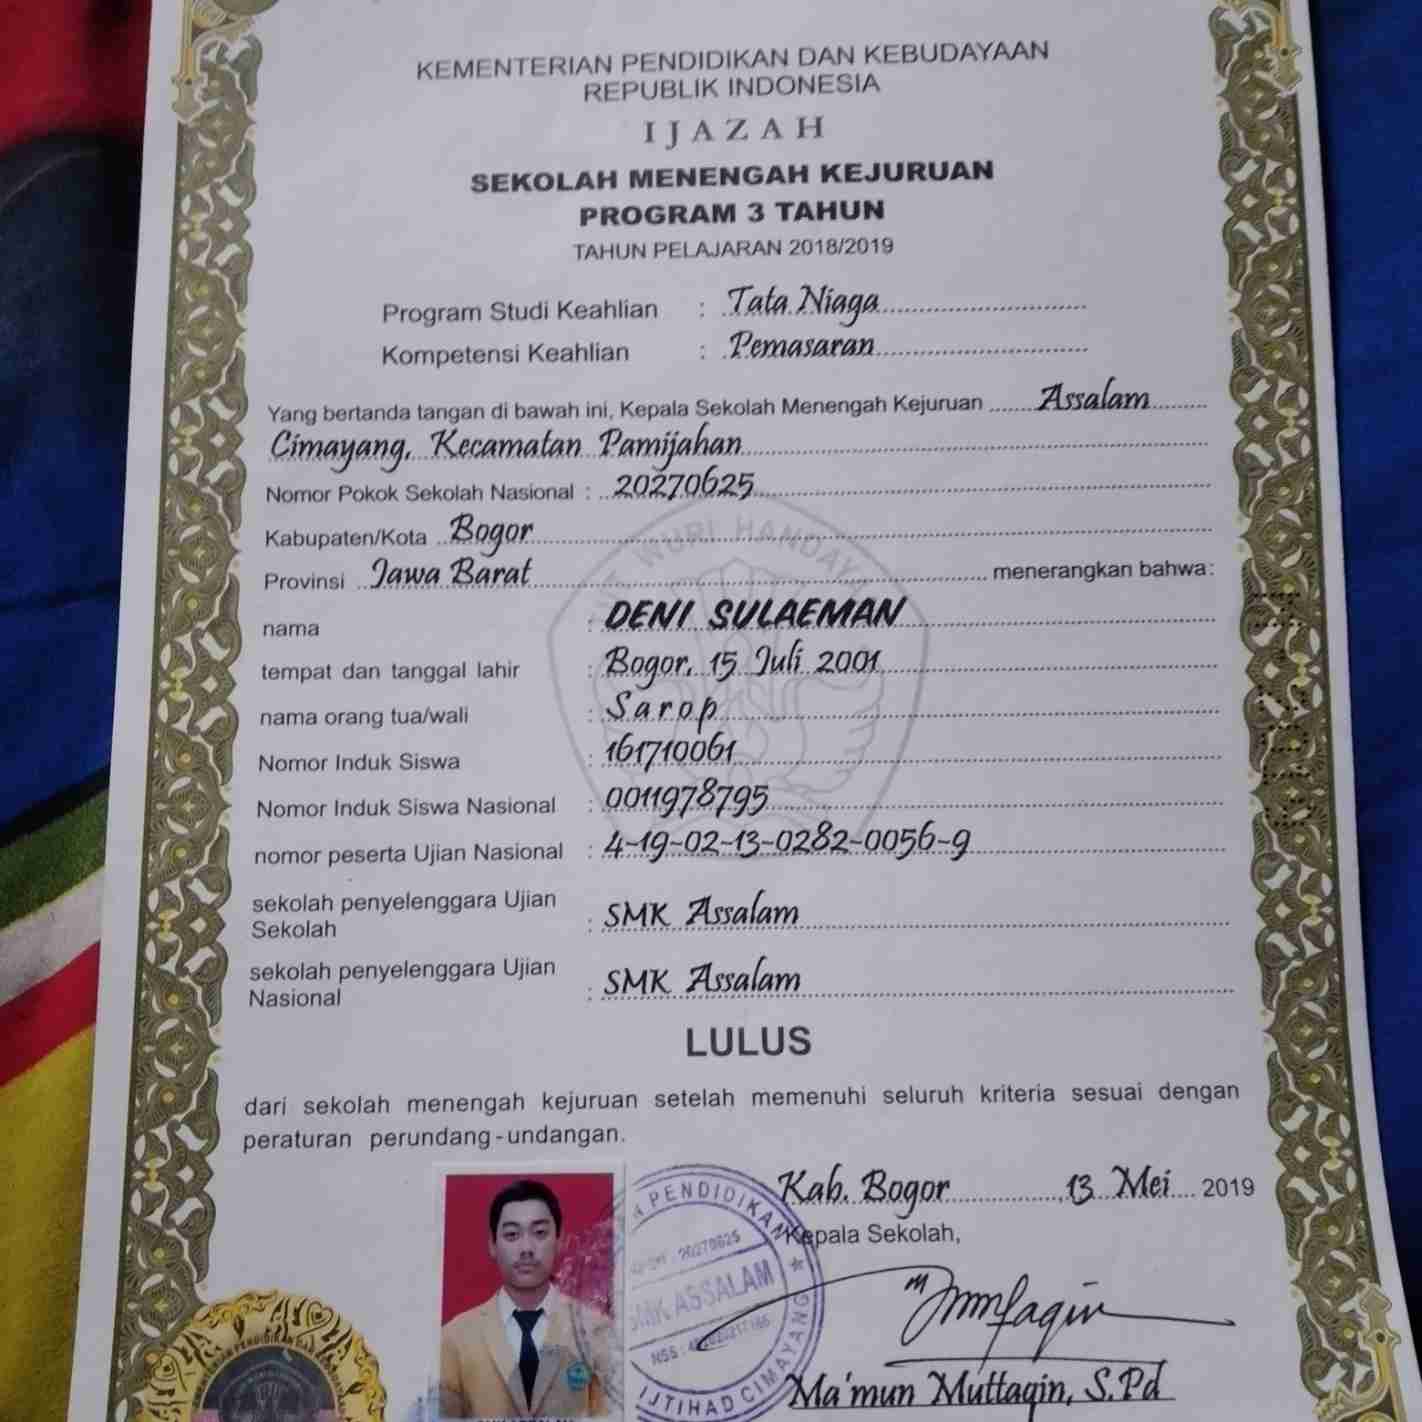 KEMENTERIAN PENDIDIKAN DAN KEBUDAYAAN
REPUBLIK INDONESIA
IJAZAH
SEKOLAH MENENGAH KEJURUAN
PROGRAM 3 TAHUN
TAHUN PELAJARAN 2018/2019
Program Studi Keahlian : Tata Niaga
Kompetensi Keahlian : Pemasaran
Yang bertanda tangan di bawah ini, Kepala Sekolah Menengah Kejuruan Assalam
Cimayang, Kecamatan Pamijahan
Nomor Pokok Sekolah Nasional : 20270625
Kabupaten/Kota Bogor
Provinsi Jawa Barat menerangkan bahwa:
nama : DENI SULAEMAN
tempat dan tanggal lahir : Bogor, 15 Juli 2001
nama orang tua/wali : Sarop
Nomor Induk Siswa : 161710061
Nomor Induk Siswa Nasional : 0011978795
nomor peserta Ujian Nasional : 4-19-02-13-0282-0056-9
sekolah penyelenggara Ujian
Sekolah : SMK Assalam
sekolah penyelenggara Ujian
Nasional : SMK Assalam
LULUS
dari sekolah menengah kejuruan setelah memenuhi seluruh kriteria sesuai dengan
peraturan perundang-undangan.
Kab. Bogor, 13 Mei 2019
Kepala Sekolah,
Ma'mun Muttaqin, S.Pd
PENDIDIKAN
20270625
SMK ASSALAM
NSS :
IJTIHAD CIMAYANG
WURI HANDAY